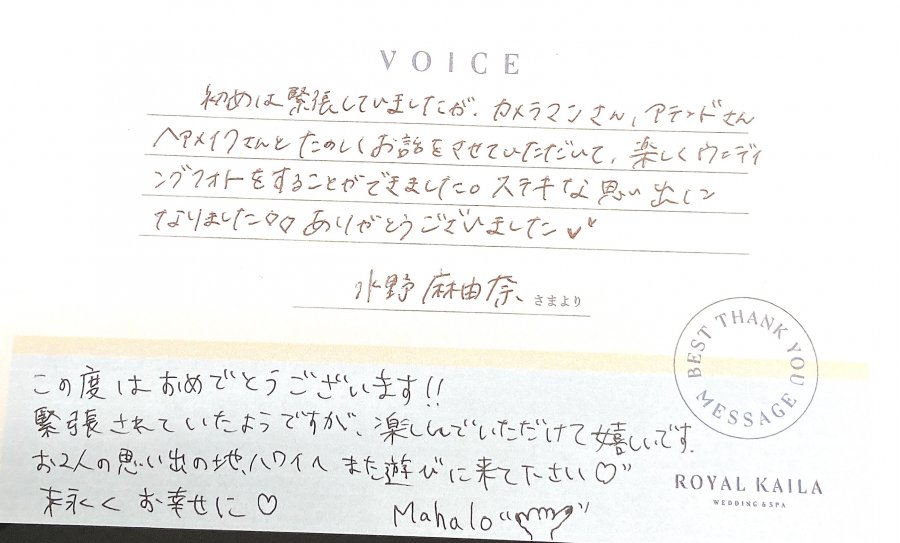 VOICE
初めは緊張していましたが、カメラマンさん、アテンドさん
ヘアメイクさんとたのしくお話をさせていただいて、楽しくウェディ
ングフォトをすることができました。ステキな思い出に
なりました♡♡ ありがとうございました
水野 麻由奈 さまより
BEST THANK YOU MESSAGE
この度はおめでとうございます!!
緊張されていたようですが、楽しんでいただけて嬉しいです。
お2人の思い出の地、ハワイへ また遊びに来て下さい♡"
末永く お幸せに♡
Mahalo
ROYAL KAILA
WEDDING & SPA